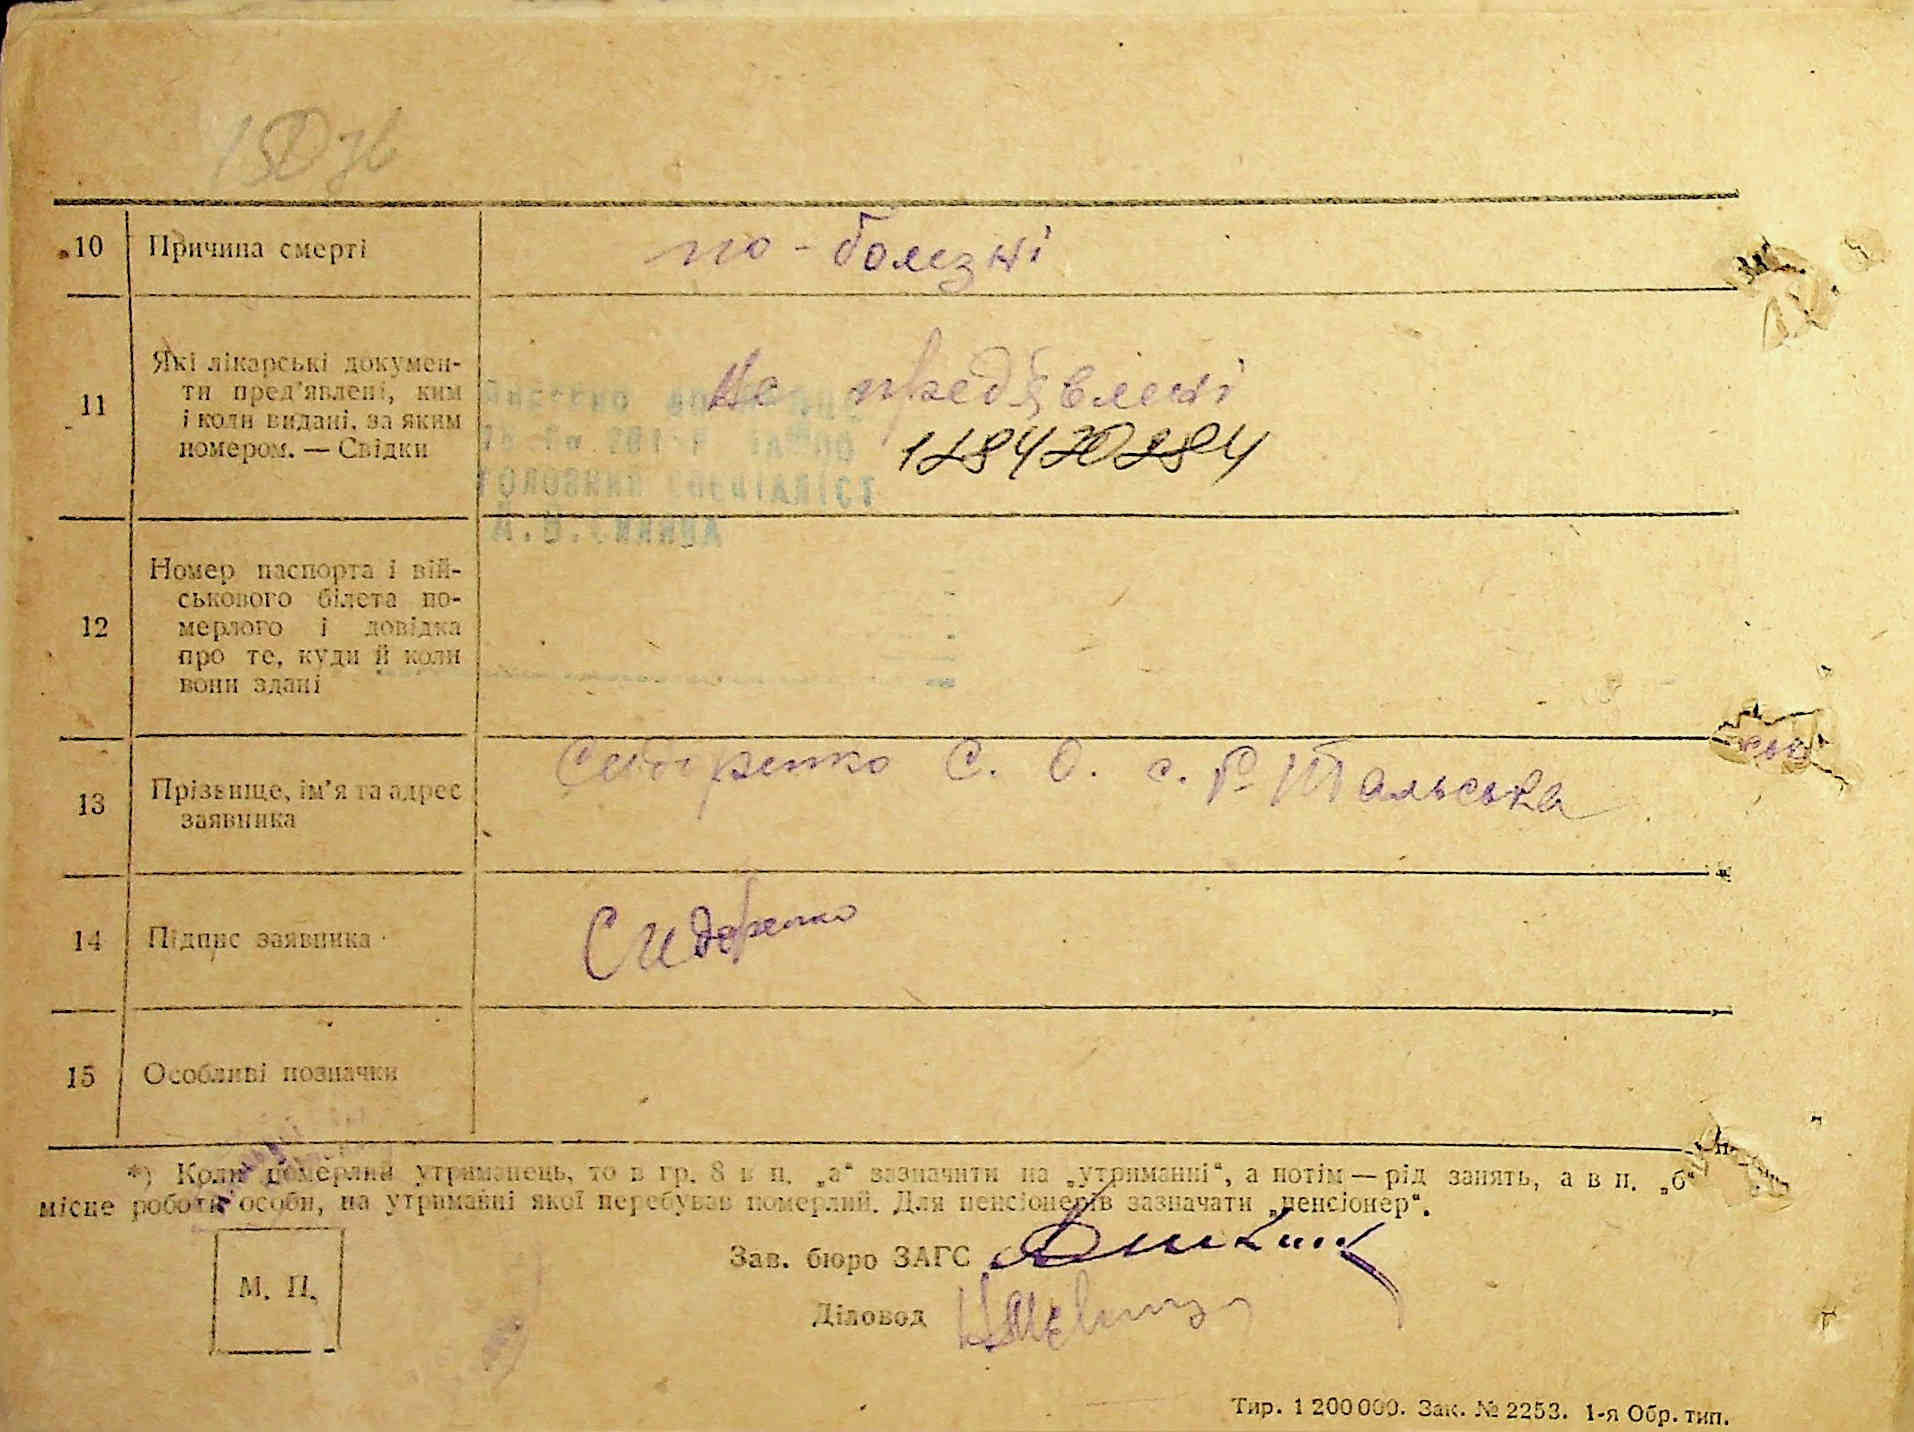 10 Причина смерті по-болезні
11 Які лікарські докумен-
ти пред’явлені, ким
і коли видані, за яким
номером. — Свідки
Не предявлені
ГОЛОВНИЙ СПЕЦІАЛІСТ
12 Номер паспорта і вій-
ськового білета по-
мерлого і довідка
про те, куди й коли
вони здані
13 Прізвище, ім’я та адрес
заявника
Сидоренко С. О. с.
14 Підпис заявника Сидоренко
15 Особливі позначки
*) Коли померлий утриманець, то в гр. 8 в п. „а“ зазначити на „утриманні“, а потім — рід занять, а в п. „б“
місце роботи особи, на утриманні якої перебував померлий. Для пенсіонерів зазначати „пенсіонер“.
Зав. бюро ЗАГС
М. П.
Діловод
Тир. 1 200 000. Зак. № 2253. 1-я Обр. тип.